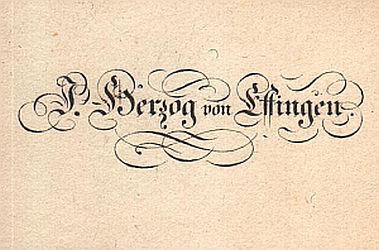 J. Herzog von Effingen.